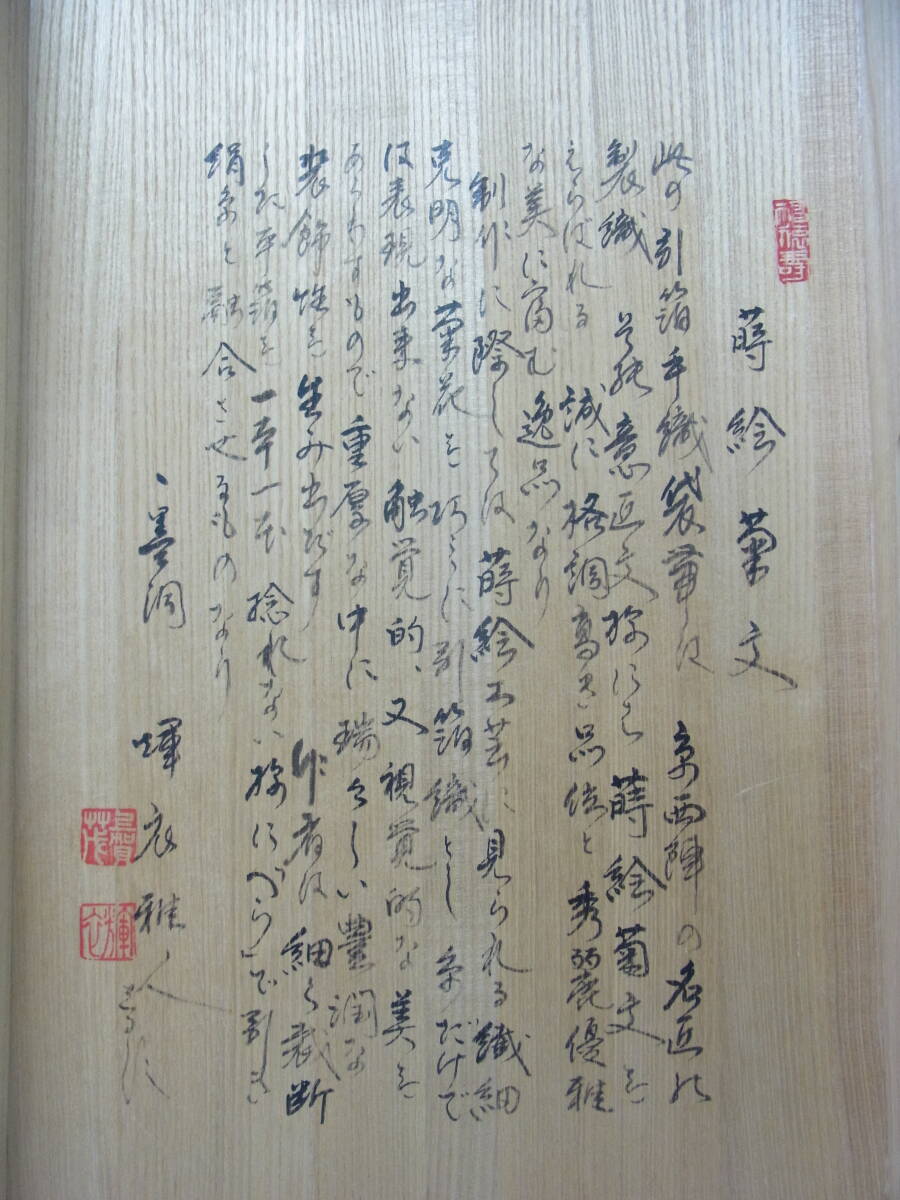 福禄寿
蒔絵菊文
此の引箔手織袋帯は 京西陣の名匠の
製織 意匠文様にも 蒔絵菊文を
えらばれる 誠に格調高き品位と秀麗優雅
な美に富む逸品なり
制作に際しては 蒔絵工芸に見られる繊細
克明な菊花を巧みに引箔織とし 糸だけで
は表現出来ない触覚的、又視覚的な美を
あらわすもので 重厚な中に 瑞々しい豊潤な
装飾性を生み出だす 作者は 細く裁断
した本箔を一本一本 捻れない様に「へら」で引き
絹糸と融合させるものなり
墨潤 輝衣雅人